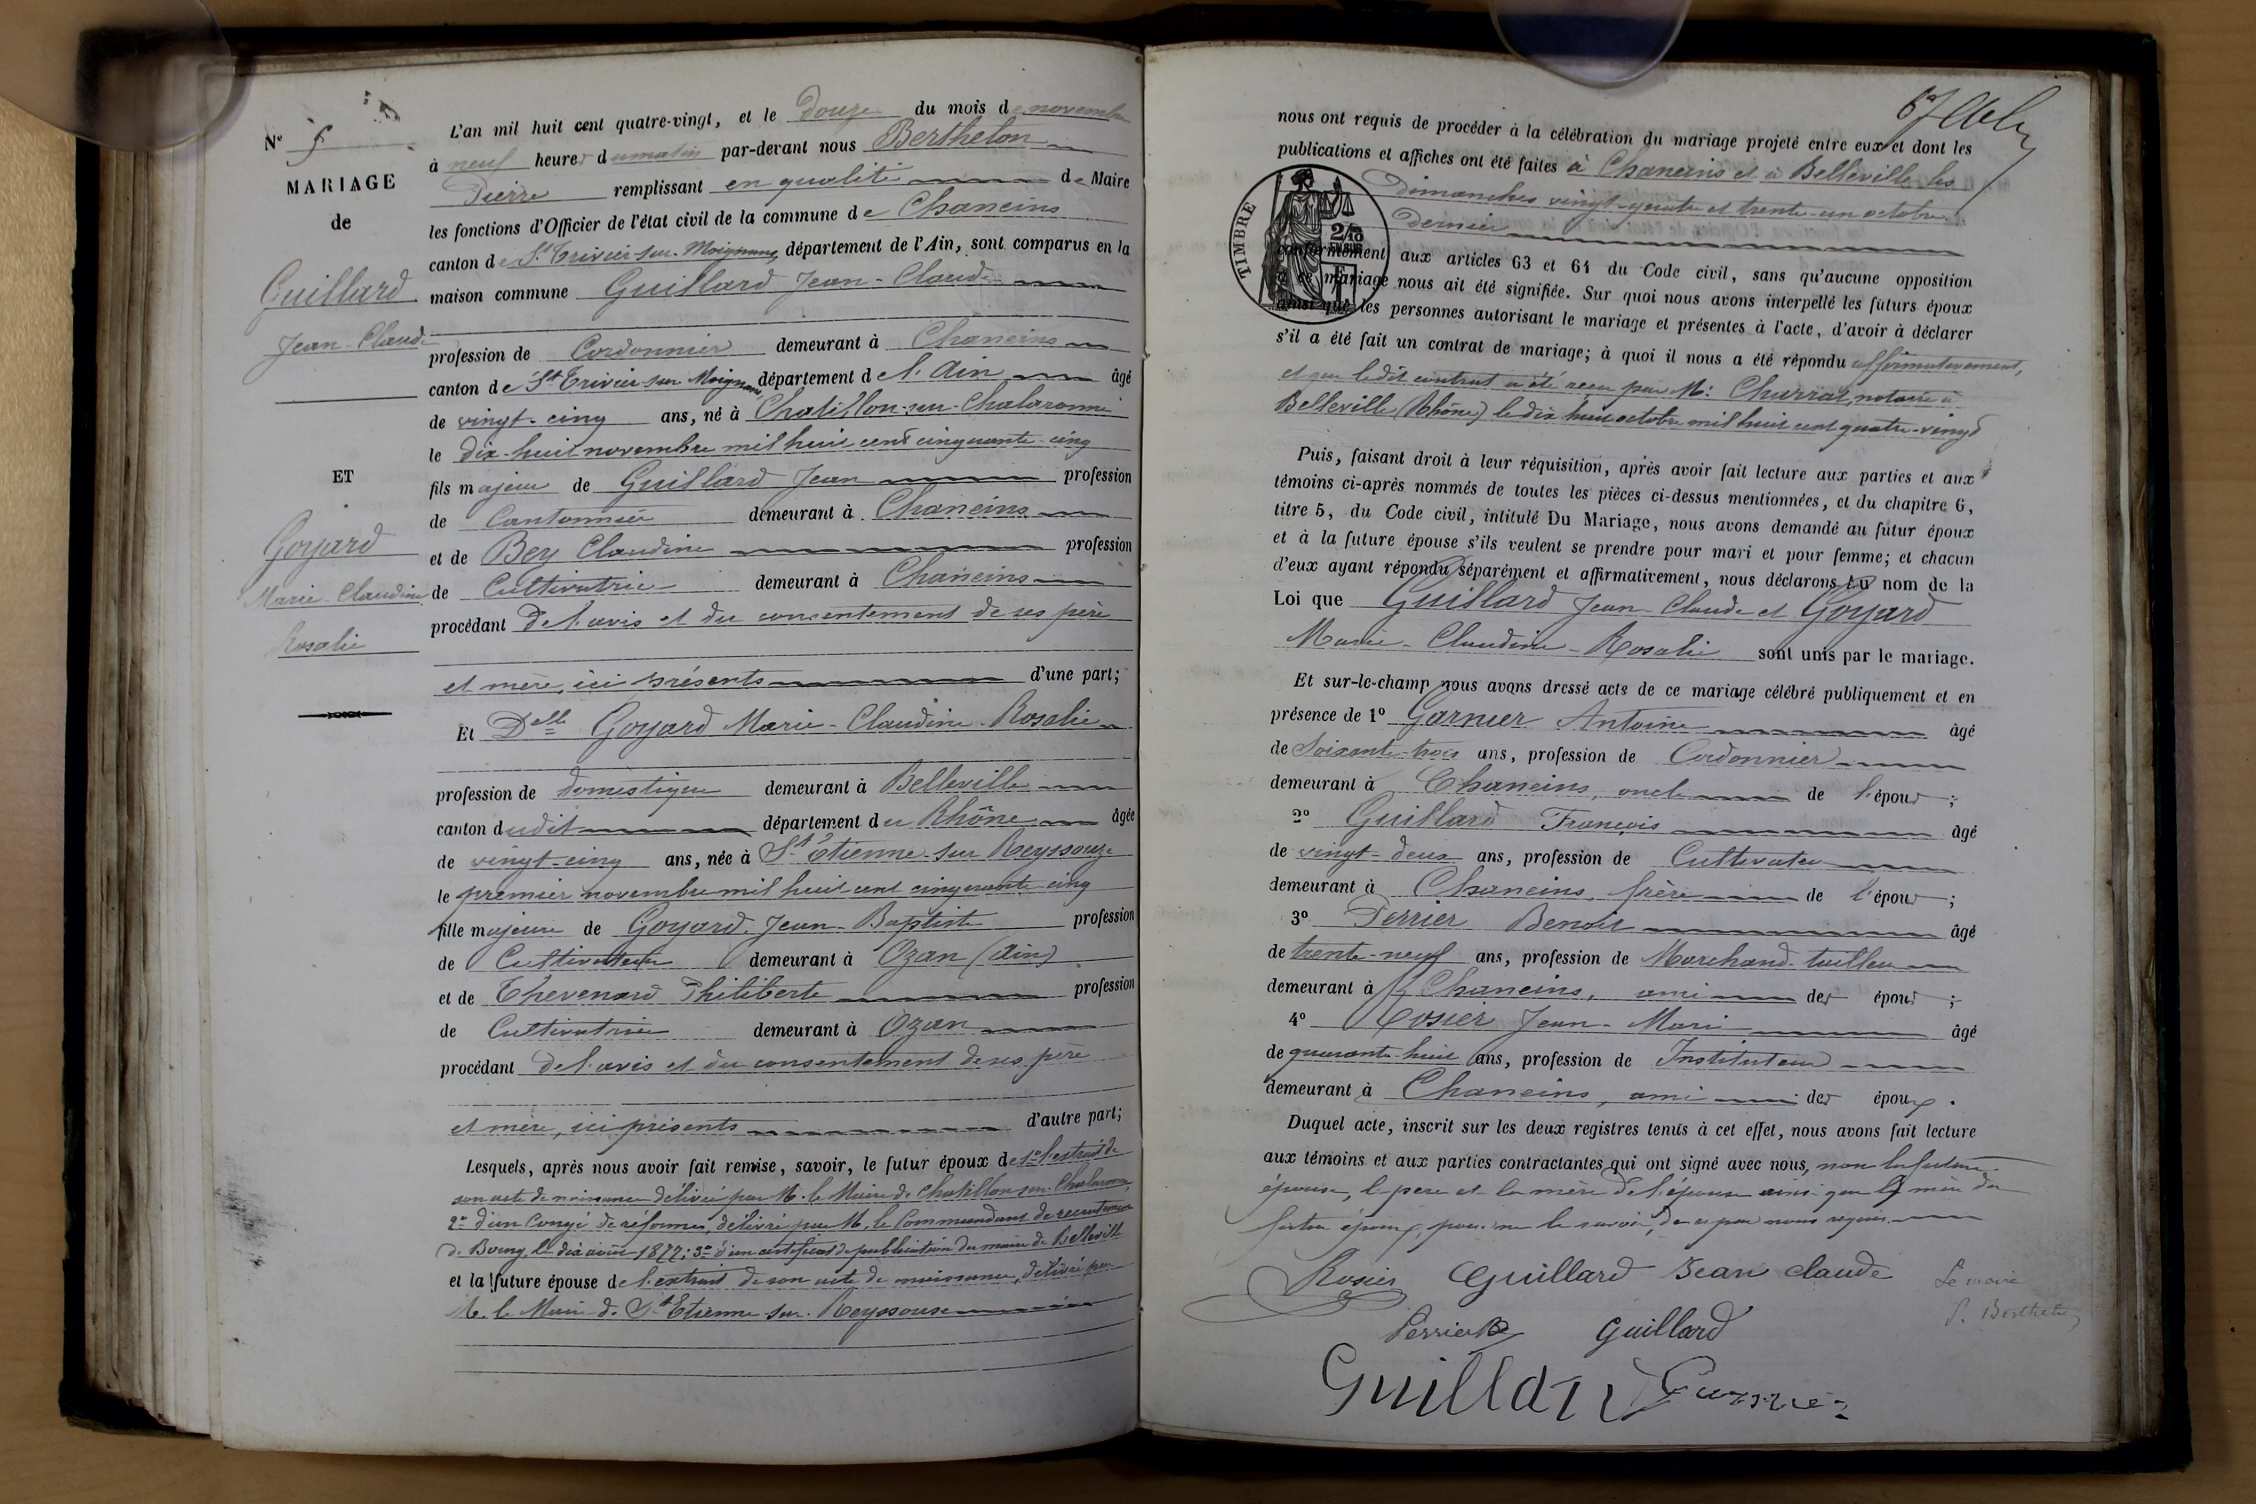 N°
MARIAGE
de
Guillard
Jean-Claude
ET
Goyard
Marie-Claudine
Rosalie
L'an mil huit cent quatre-vingt, et le douze du mois de novembre
à neuf heures du matin par-devant nous Berthelon
Pierre remplissant en qualité de Maire
les fonctions d'Officier de l'état civil de la commune de Chaneins
canton de St Trivier-sur-Moignans département de l'Ain, sont comparus en la
maison commune Guillard Jean-Claude
profession de Cordonnier demeurant à Chaneins
canton de St Trivier-sur-Moignans département de l'Ain âgé
de vingt-cinq ans, né à Chatillon-sur-Chalaronne
le dix-huit novembre mil huit cent cinquante-cinq
fils majeur de Guillard Jean profession
de Cantonnier demeurant à Chaneins
et de Bey Claudine profession
de Cultivatrice demeurant à Chaneins
procédant de l'avis et du consentement de ses père
et mère, ici présents d'une part;
Et Delle Goyard Marie-Claudine-Rosalie
profession de domestique demeurant à Belleville
canton dudit département du Rhône âgée
de vingt-cinq ans, née à St Etienne-sur-Reyssouze
le premier novembre mil huit cent cinquante-cinq
fille majeure de Goyard Jean-Baptiste profession
de Cultivateur demeurant à Ozan (Ain)
et de Thevenard Philiberte profession
de Cultivatrice demeurant à Ozan
procédant de l'avis et du consentement de ses père
et mère, ici présents d'autre part;
Lesquels, après nous avoir fait remise, savoir, le futur époux de 1° l'extrait de
son acte de naissance délivré par M. le Maire de Chatillon-sur-Chalaronne,
2° d'un Congé de réforme, délivré par M. le Commandant de recrutement
de Bourg, le dix août 1877; 3° d'un certificat de publication du maire de Belleville
et la future épouse de l'extrait de son acte de naissance, délivré par
M. le Maire de St Etienne-sur-Reyssouze
nous ont requis de procéder à la célébration du mariage projeté entre eux et dont les
publications et affiches ont été faites à Chaneins et à Belleville les
Dimanches vingt-quatre et trente-un octobre
dernier
TIMBRE
conformément aux articles 63 et 64 du Code civil, sans qu'aucune opposition
à ce mariage nous ait été signifiée. Sur quoi nous avons interpellé les futurs époux
ainsi que les personnes autorisant le mariage et présentes à l'acte, d'avoir à déclarer
s'il a été fait un contrat de mariage; à quoi il nous a été répondu affirmativement,
et que ledit contrat a été reçu par Me Charrat, notaire à
Belleville (Rhône) le dix huit octobre mil huit cent quatre-vingt
Puis, faisant droit à leur réquisition, après avoir fait lecture aux parties et aux
témoins ci-après nommés de toutes les pièces ci-dessus mentionnées, et du chapitre 6,
titre 5, du Code civil, intitulé Du Mariage, nous avons demandé au futur époux
et à la future épouse s'ils veulent se prendre pour mari et pour femme; et chacun
d'eux ayant répondu séparément et affirmativement, nous déclarons au nom de la
Loi que Guillard Jean-Claude et Goyard
Marie-Claudine-Rosalie sont unis par le mariage.
Et sur-le-champ nous avons dressé acte de ce mariage célébré publiquement et en
présence de 1° Garnier Antoine âgé
de Soixante-trois ans, profession de Cordonnier
demeurant à Chaneins, oncle de l'époux;
2° Guillard François âgé
de vingt-deux ans, profession de Cultivateur
demeurant à Chaneins, frère de l'époux;
3° Perrier Benoit âgé
de trente-neuf ans, profession de Marchand-tailleur
demeurant à Chaneins, ami des époux;
4° Rosier Jean-Marie âgé
de quarante-huit ans, profession de Instituteur
demeurant à Chaneins, ami des époux.
Duquel acte, inscrit sur les deux registres tenus à cet effet, nous avons fait lecture
aux témoins et aux parties contractantes qui ont signé avec nous, non la future
épouse, le père et la mère de l'épouse ainsi que la mère du
futur époux, pour ne le savoir, de ce par nous requis.
Rosier Guillard Jean claude Le maire
P. Berthelon
Perrier B Guillard
Guillard Garnier